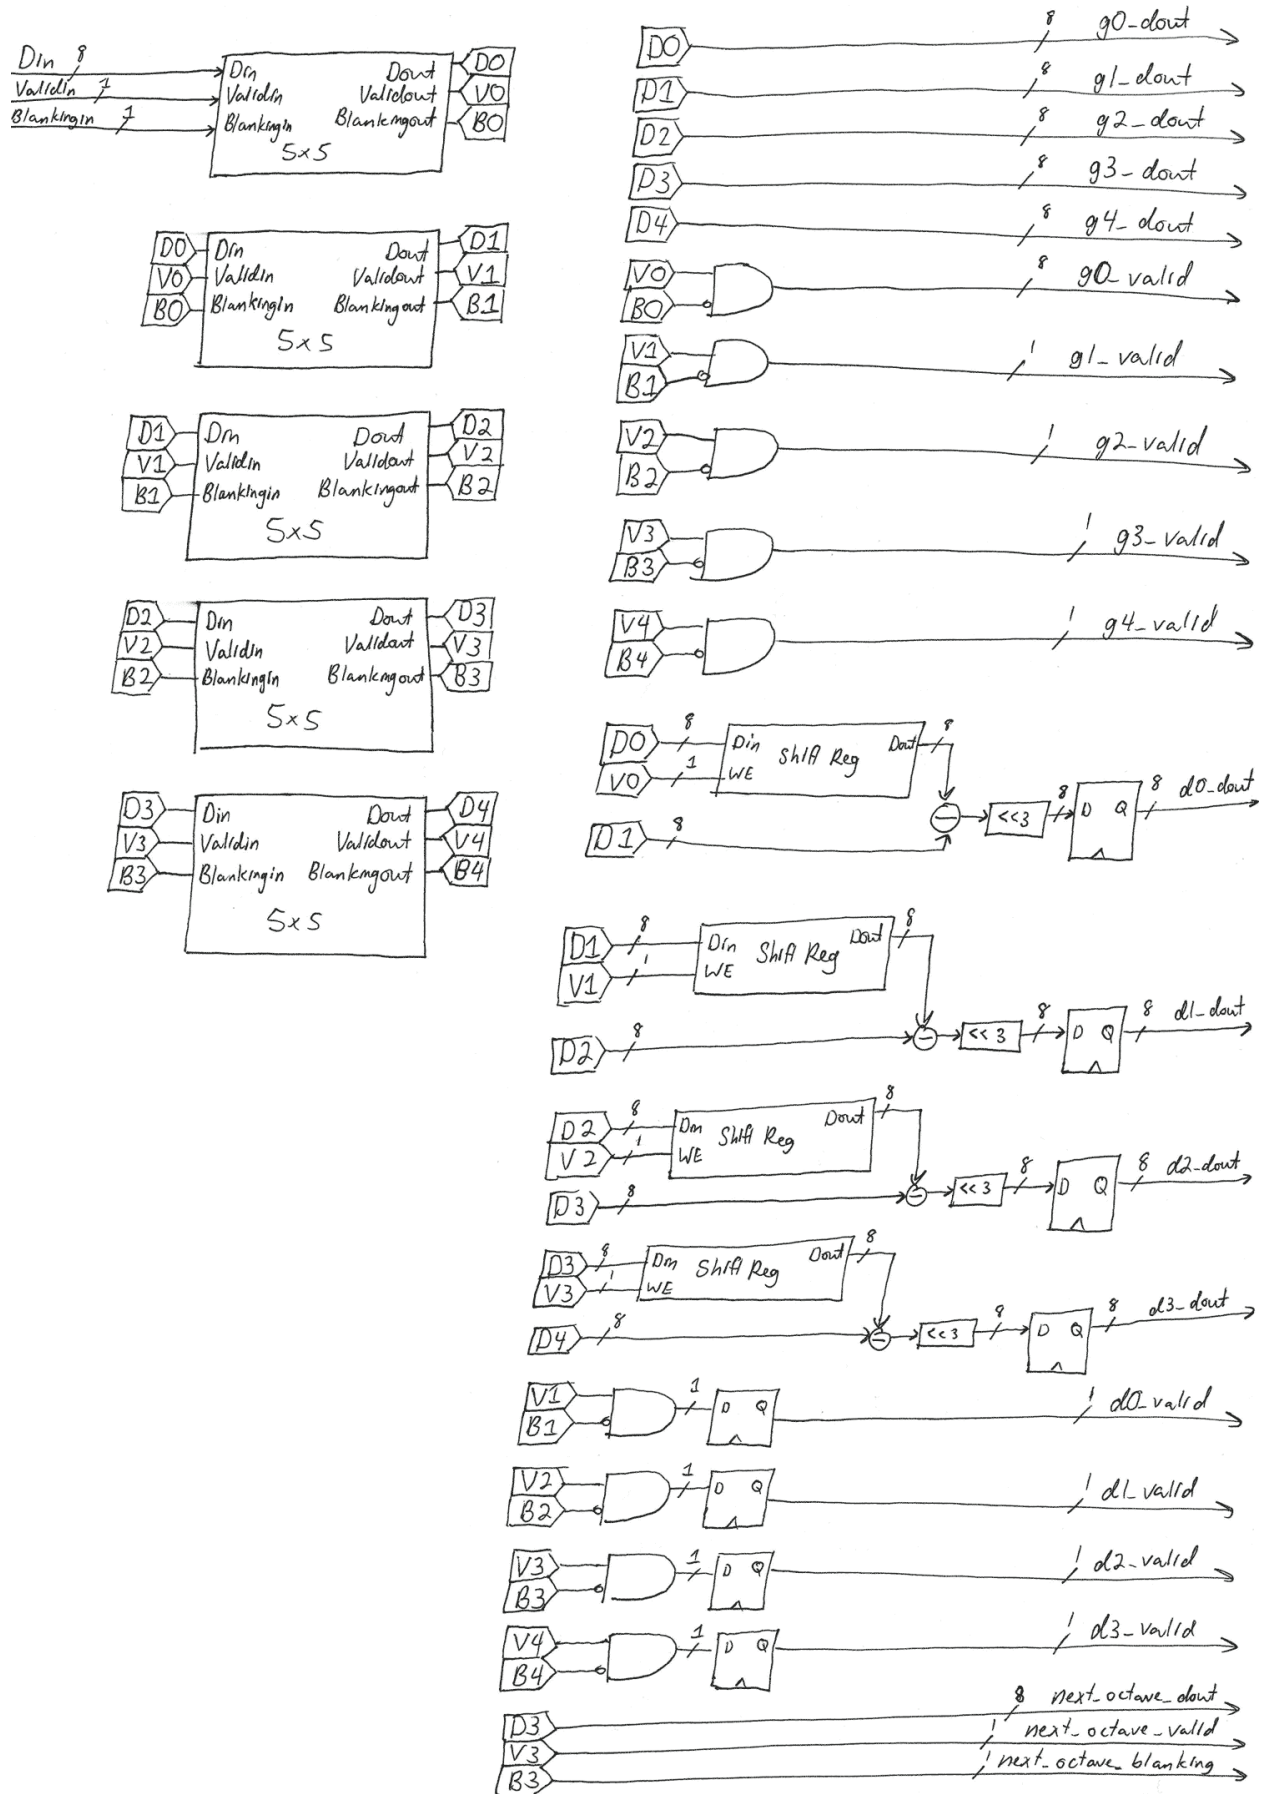 Din 8
Validin 1
Blankingin 1
Din Dout D0
Validin Validout V0
Blankingin Blankingout B0
5x5
D0 Din Dout D1
V0 Validin Validout V1
B0 Blankingin Blankingout B1
5x5
D1 Din Dout D2
V1 Validin Validout V2
B1 Blankingin Blankingout B2
5x5
D2 Din Dout D3
V2 Validin Validout V3
B2 Blankingin Blankingout B3
5x5
D3 Din Dout D4
V3 Validin Validout V4
B3 Blankingin Blankingout B4
5x5
D0 8 g0_dout
D1 8 g1_dout
D2 8 g2_dout
D3 8 g3_dout
D4 8 g4_dout
V0 8 g0_valid
B0
V1 1 g1_valid
B1
V2 1 g2_valid
B2
V3 1 g3_valid
B3
V4 1 g4_valid
B4
D0 8 Din Shift Reg Dout 8
V0 1 WE
D1 8 - <<3 8 D Q 8 d0_dout
D1 8 Din Shift Reg Dout 8
V1 1 WE
D2 8 - <<3 8 D Q 8 d1_dout
D2 8 Din Shift Reg Dout 8
V2 1 WE
D3 8 - <<3 8 D Q 8 d2_dout
D3 8 Din Shift Reg Dout 8
V3 1 WE
D4 8 - <<3 8 D Q 8 d3_dout
V1 1 D Q 1 d0_valid
B1
V2 1 D Q 1 d1_valid
B2
V3 1 D Q 1 d2_valid
B3
V4 1 D Q 1 d3_valid
B4
D3 8 next_octave_dout
V3 1 next_octave_valid
B3 1 next_octave_blanking